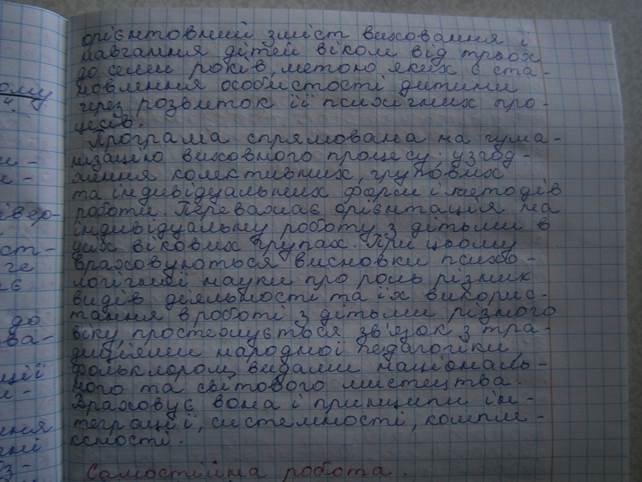 ому
орієнтовний зміст виховання і
навчання дітей віком від трьох
до семи років, метою яких є ста-
новлення особистості дитини
через розвиток її психічних про-
цесів.
Програма спрямована на гума-
нізацію виховного процесу; узгод-
ження колективних, групових
та індивідуальних форм і методів
роботи. Переважає орієнтація на
індивідуальну роботу з дітьми в
усіх вікових групах. При цьому
враховуються висновки психо-
логічної науки про роль різних
видів діяльності та їх викорис-
тання в роботі з дітьми різного
віку, простежується зв'язок з тра-
диціями народної педагогіки,
фольклором, видами національ-
ного та світового мистецтва.
Враховує вона і принципи ін-
теграції, системності, компле-
ксності.
Самостійна робота.